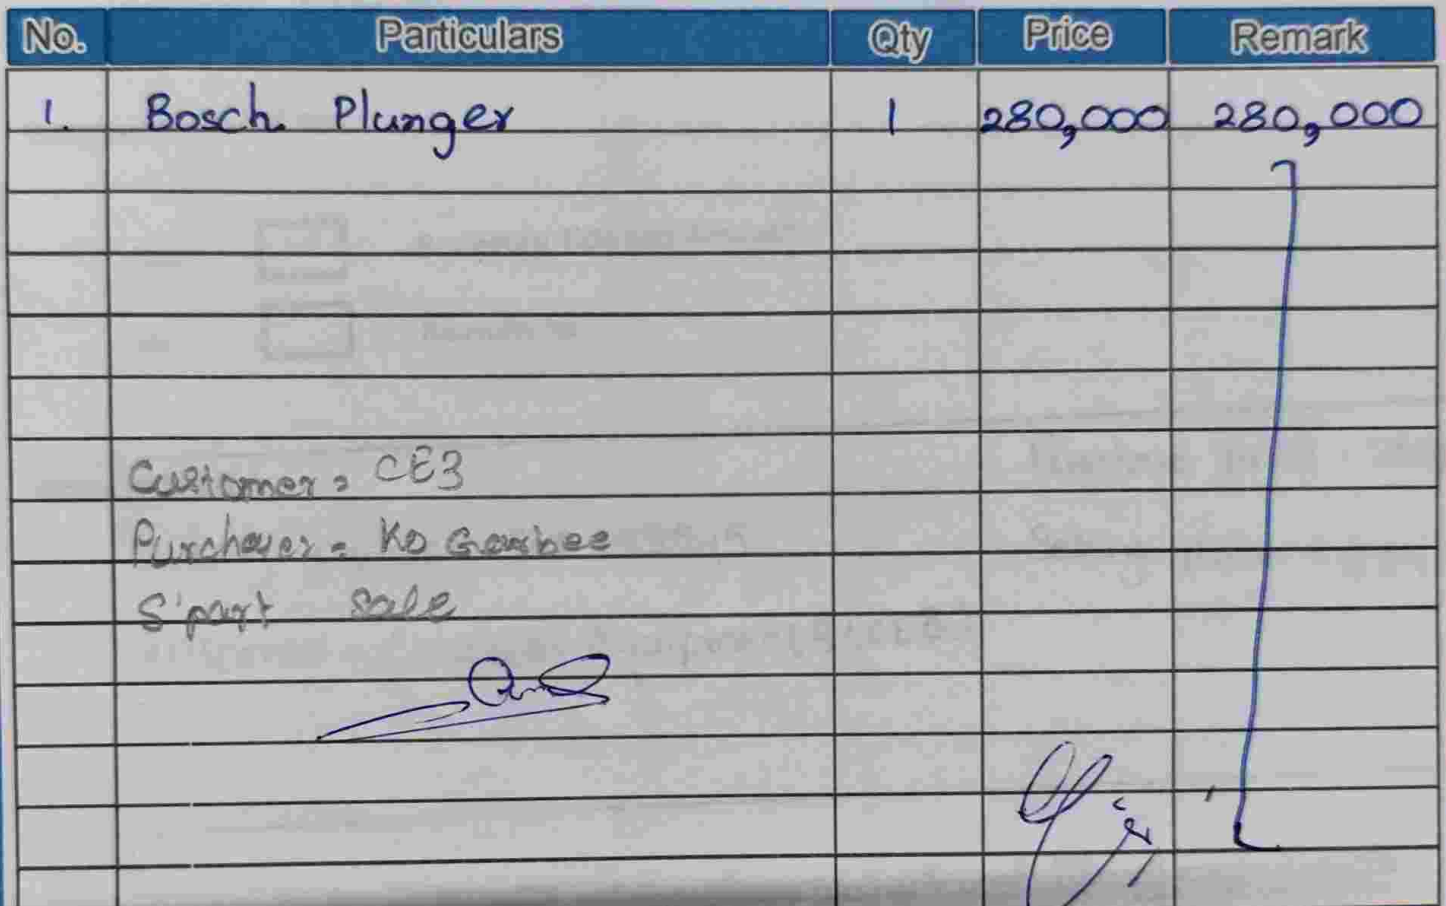 No. Particulars Qty Price Remark
1. Bosch Plunger 1 280,000 280,000
Customer = CE3
Purchaser = Ko
S'part sale